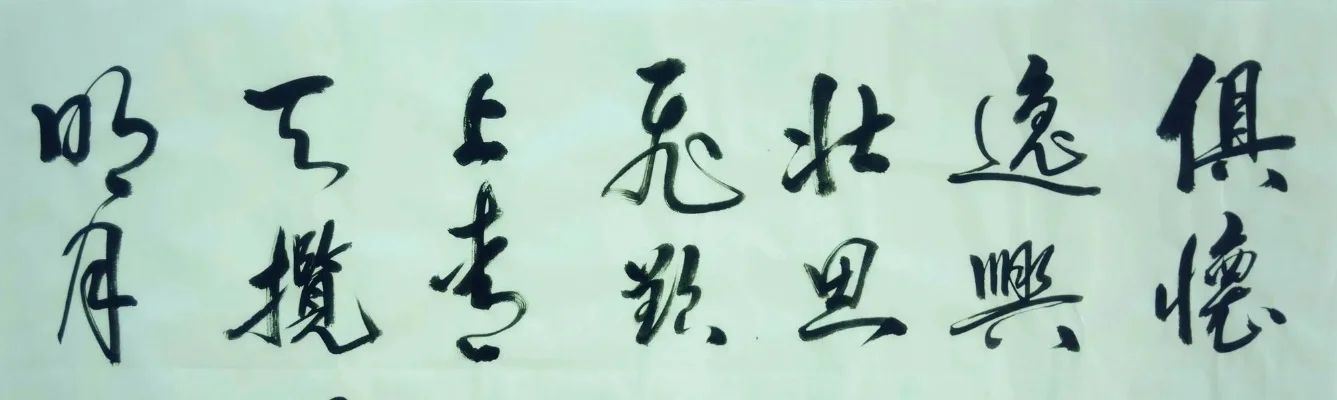 俱懷
逸興
壯思
飛欲
上青
天攬
明月